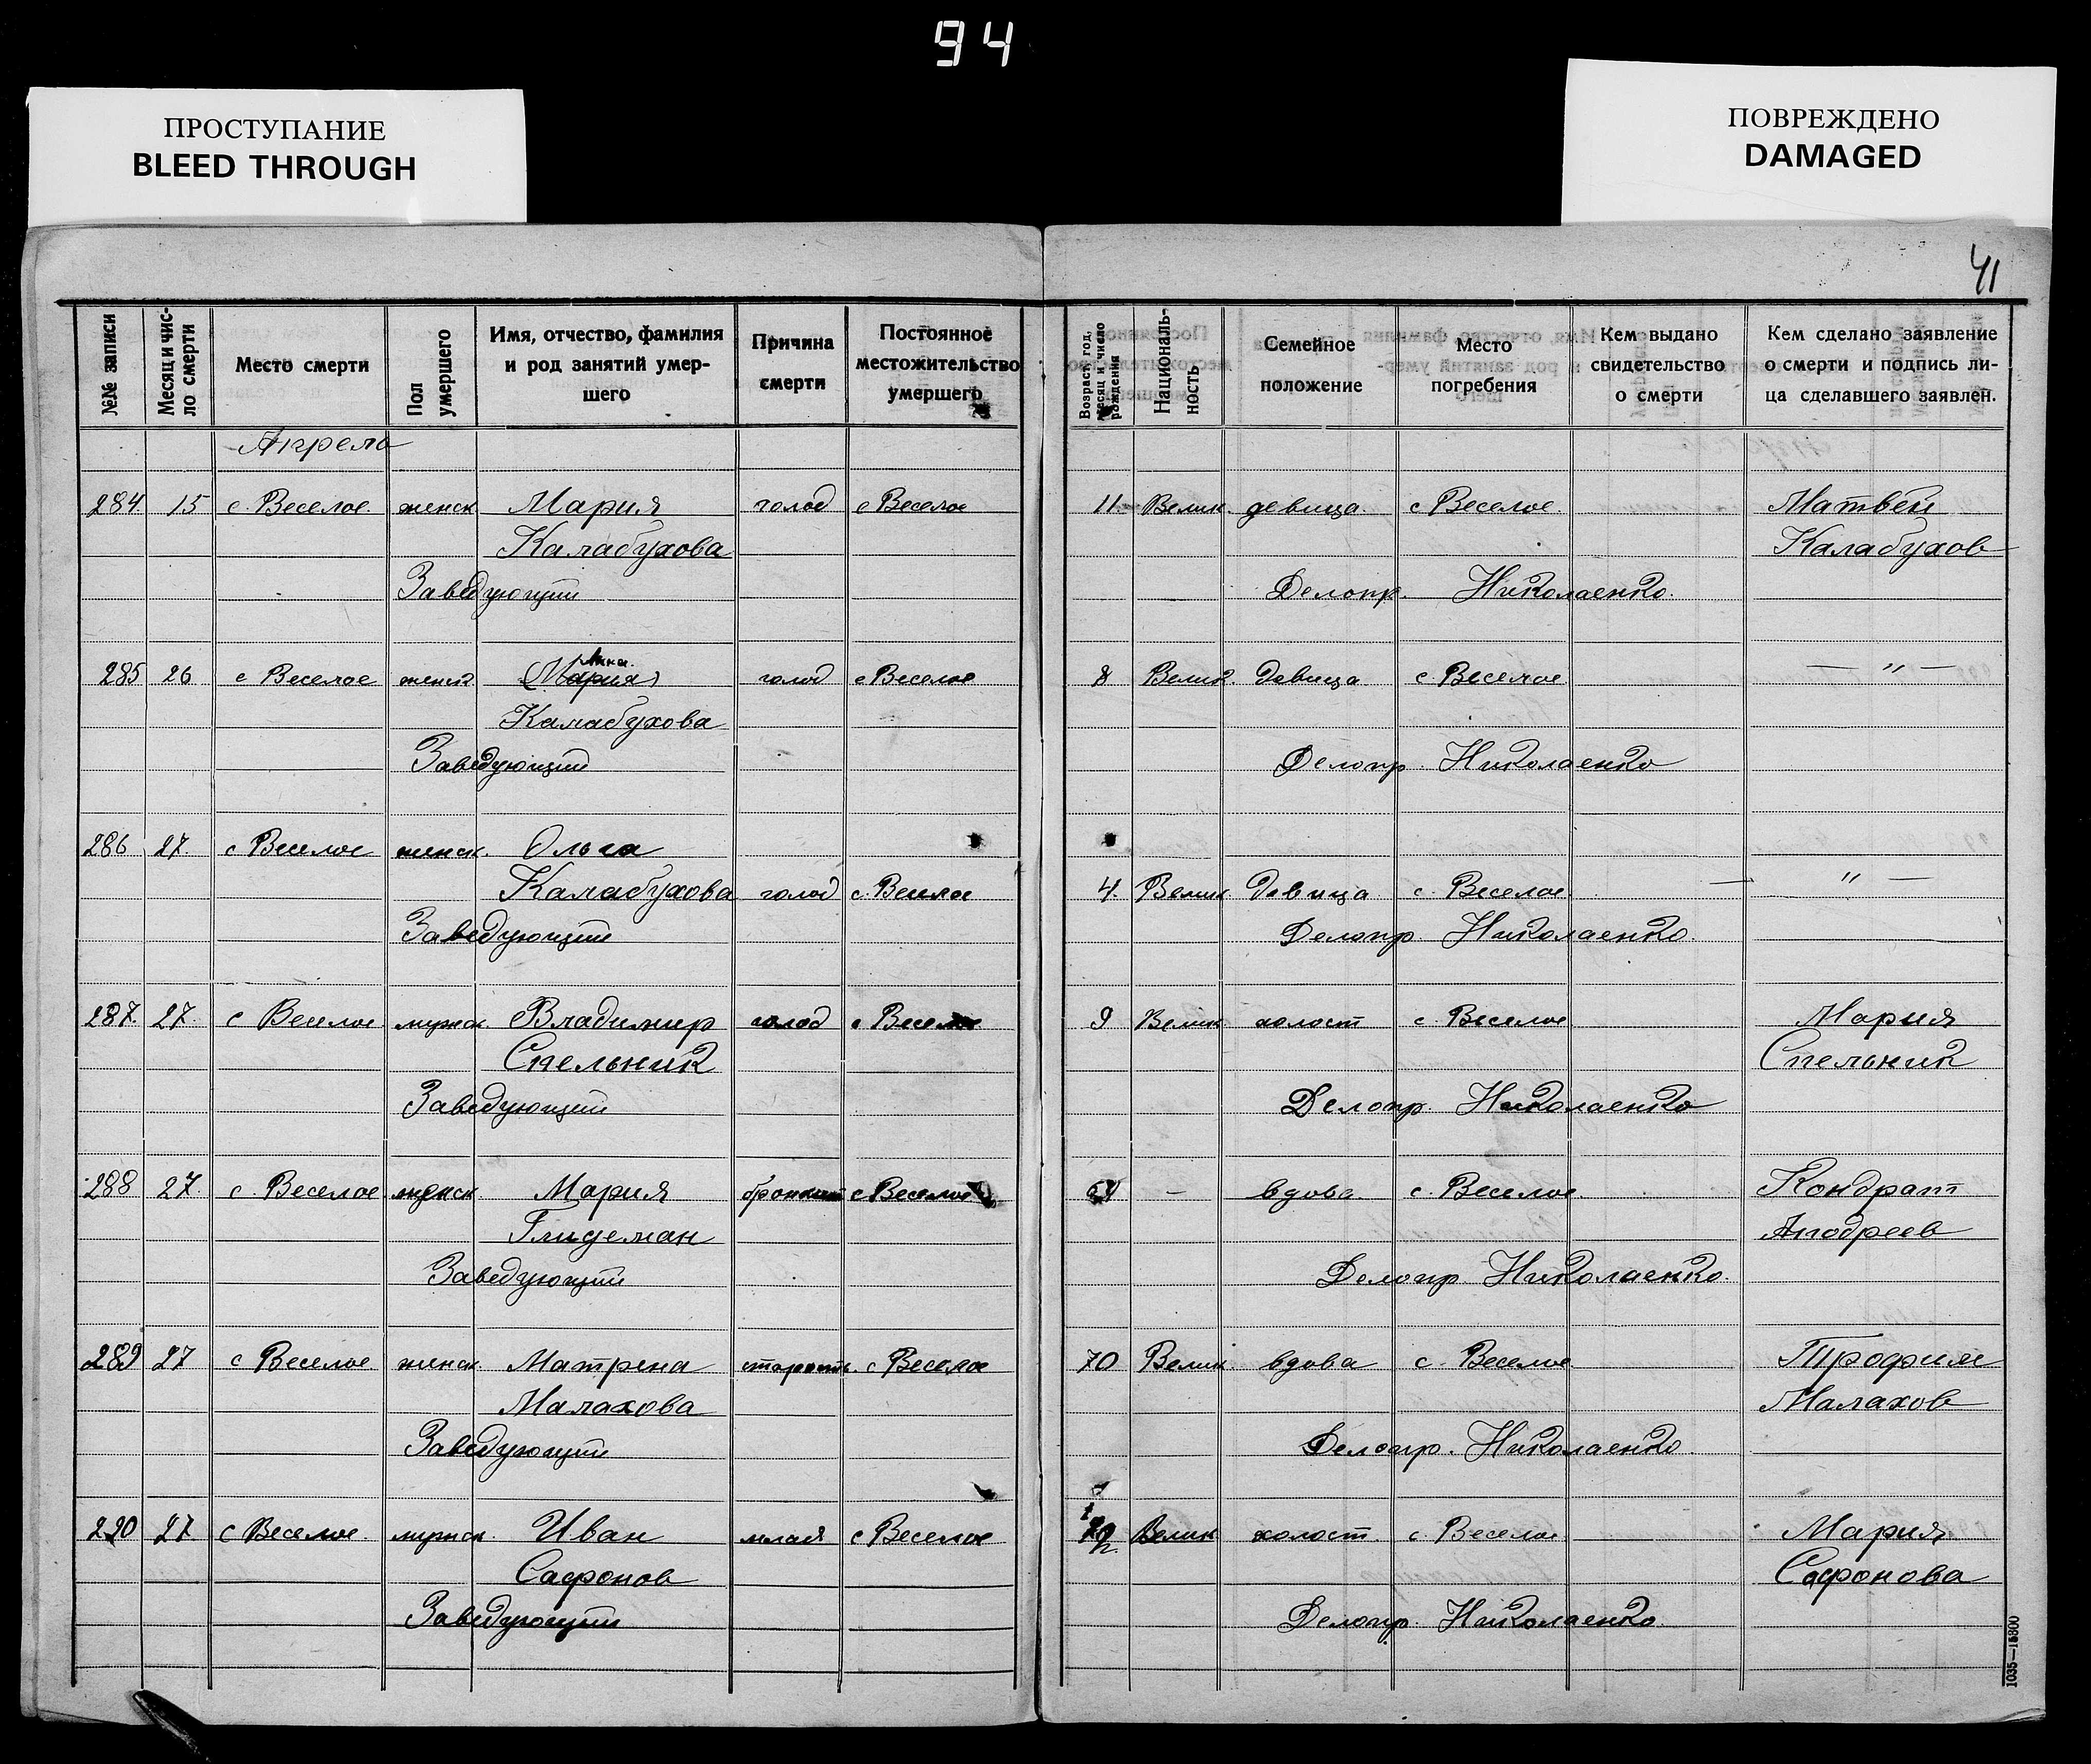 94
ПРОСТУПАНИЕ
BLEED THROUGH
ПОВРЕЖДЕНО
DAMAGED
41
№№ записи
Месяц и чис-
ло смерти
Место смерти
Пол
умершего
Имя, отчество, фамилия
и род занятий умер-
шего
Причина
смерти
Постоянное
местожительство
умершего
Возраст, год,
месяц и число
рождения
Националь-
ность
Семейное
положение
Место
погребения
Кем выдано
свидетельство
о смерти
Кем сделано заявление
о смерти и подпись ли-
ца сделавшего заявлен.
Апрель
284 15 с. Веселое женск Мария голод с Веселое 11 Велик девица с Веселое Матвей
Калабухова Калабухов
Заведующий Делопр. Николаенко.
285 26 с Веселое женск Мария Анна голод с Веселое 8 Велик. девица с Веселое — " —
Калабухова
Заведующий Делопр Николаенко
286 27. с Веселое женск. Ольга
Калабухова голод с. Веселое 4. Велик девица с. Веселое — " —
Заведующий Делопр. Николаенко.
287. 27. с Веселое мужск. Владимир голод с Веселое 9 Велик холост с. Веселое Мария
Стельник Стельник
Заведующий Делопр. Николаенко
288 27. с Веселое женск Мария бронхит с Веселое – вдова с. Веселое Кондрат
Андреев
Заведующий Делопр. Николаенко.
289 27 с Веселое женск. Матрена старость с Веселое 70 Велик. вдова с. Веселое Трофим
Малахова Малахов
Заведующий Делопр. Николаенко
290 27. с Веселое. мужск. Иван с Веселое Велик холост. с. Веселое Мария
Сафонов Сафонова
Заведующий Делопр. Николаенко.
1035—15800